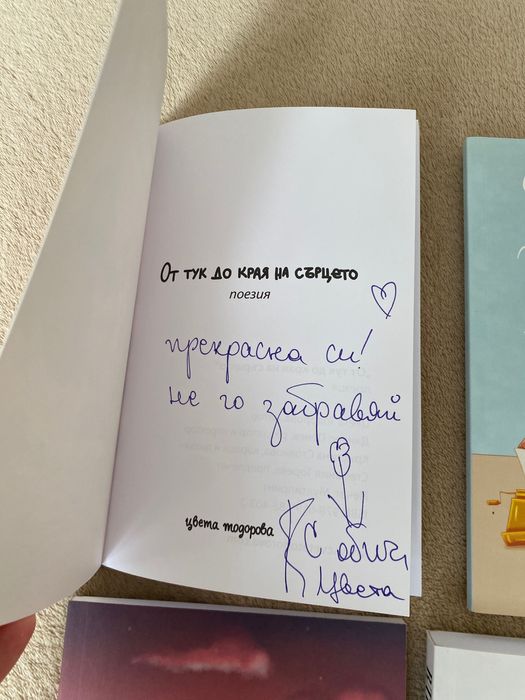 От тук до края на сърцето
поезия
прекрасна си!
не го забравяй
цвета тодорова
С обич
Цвета